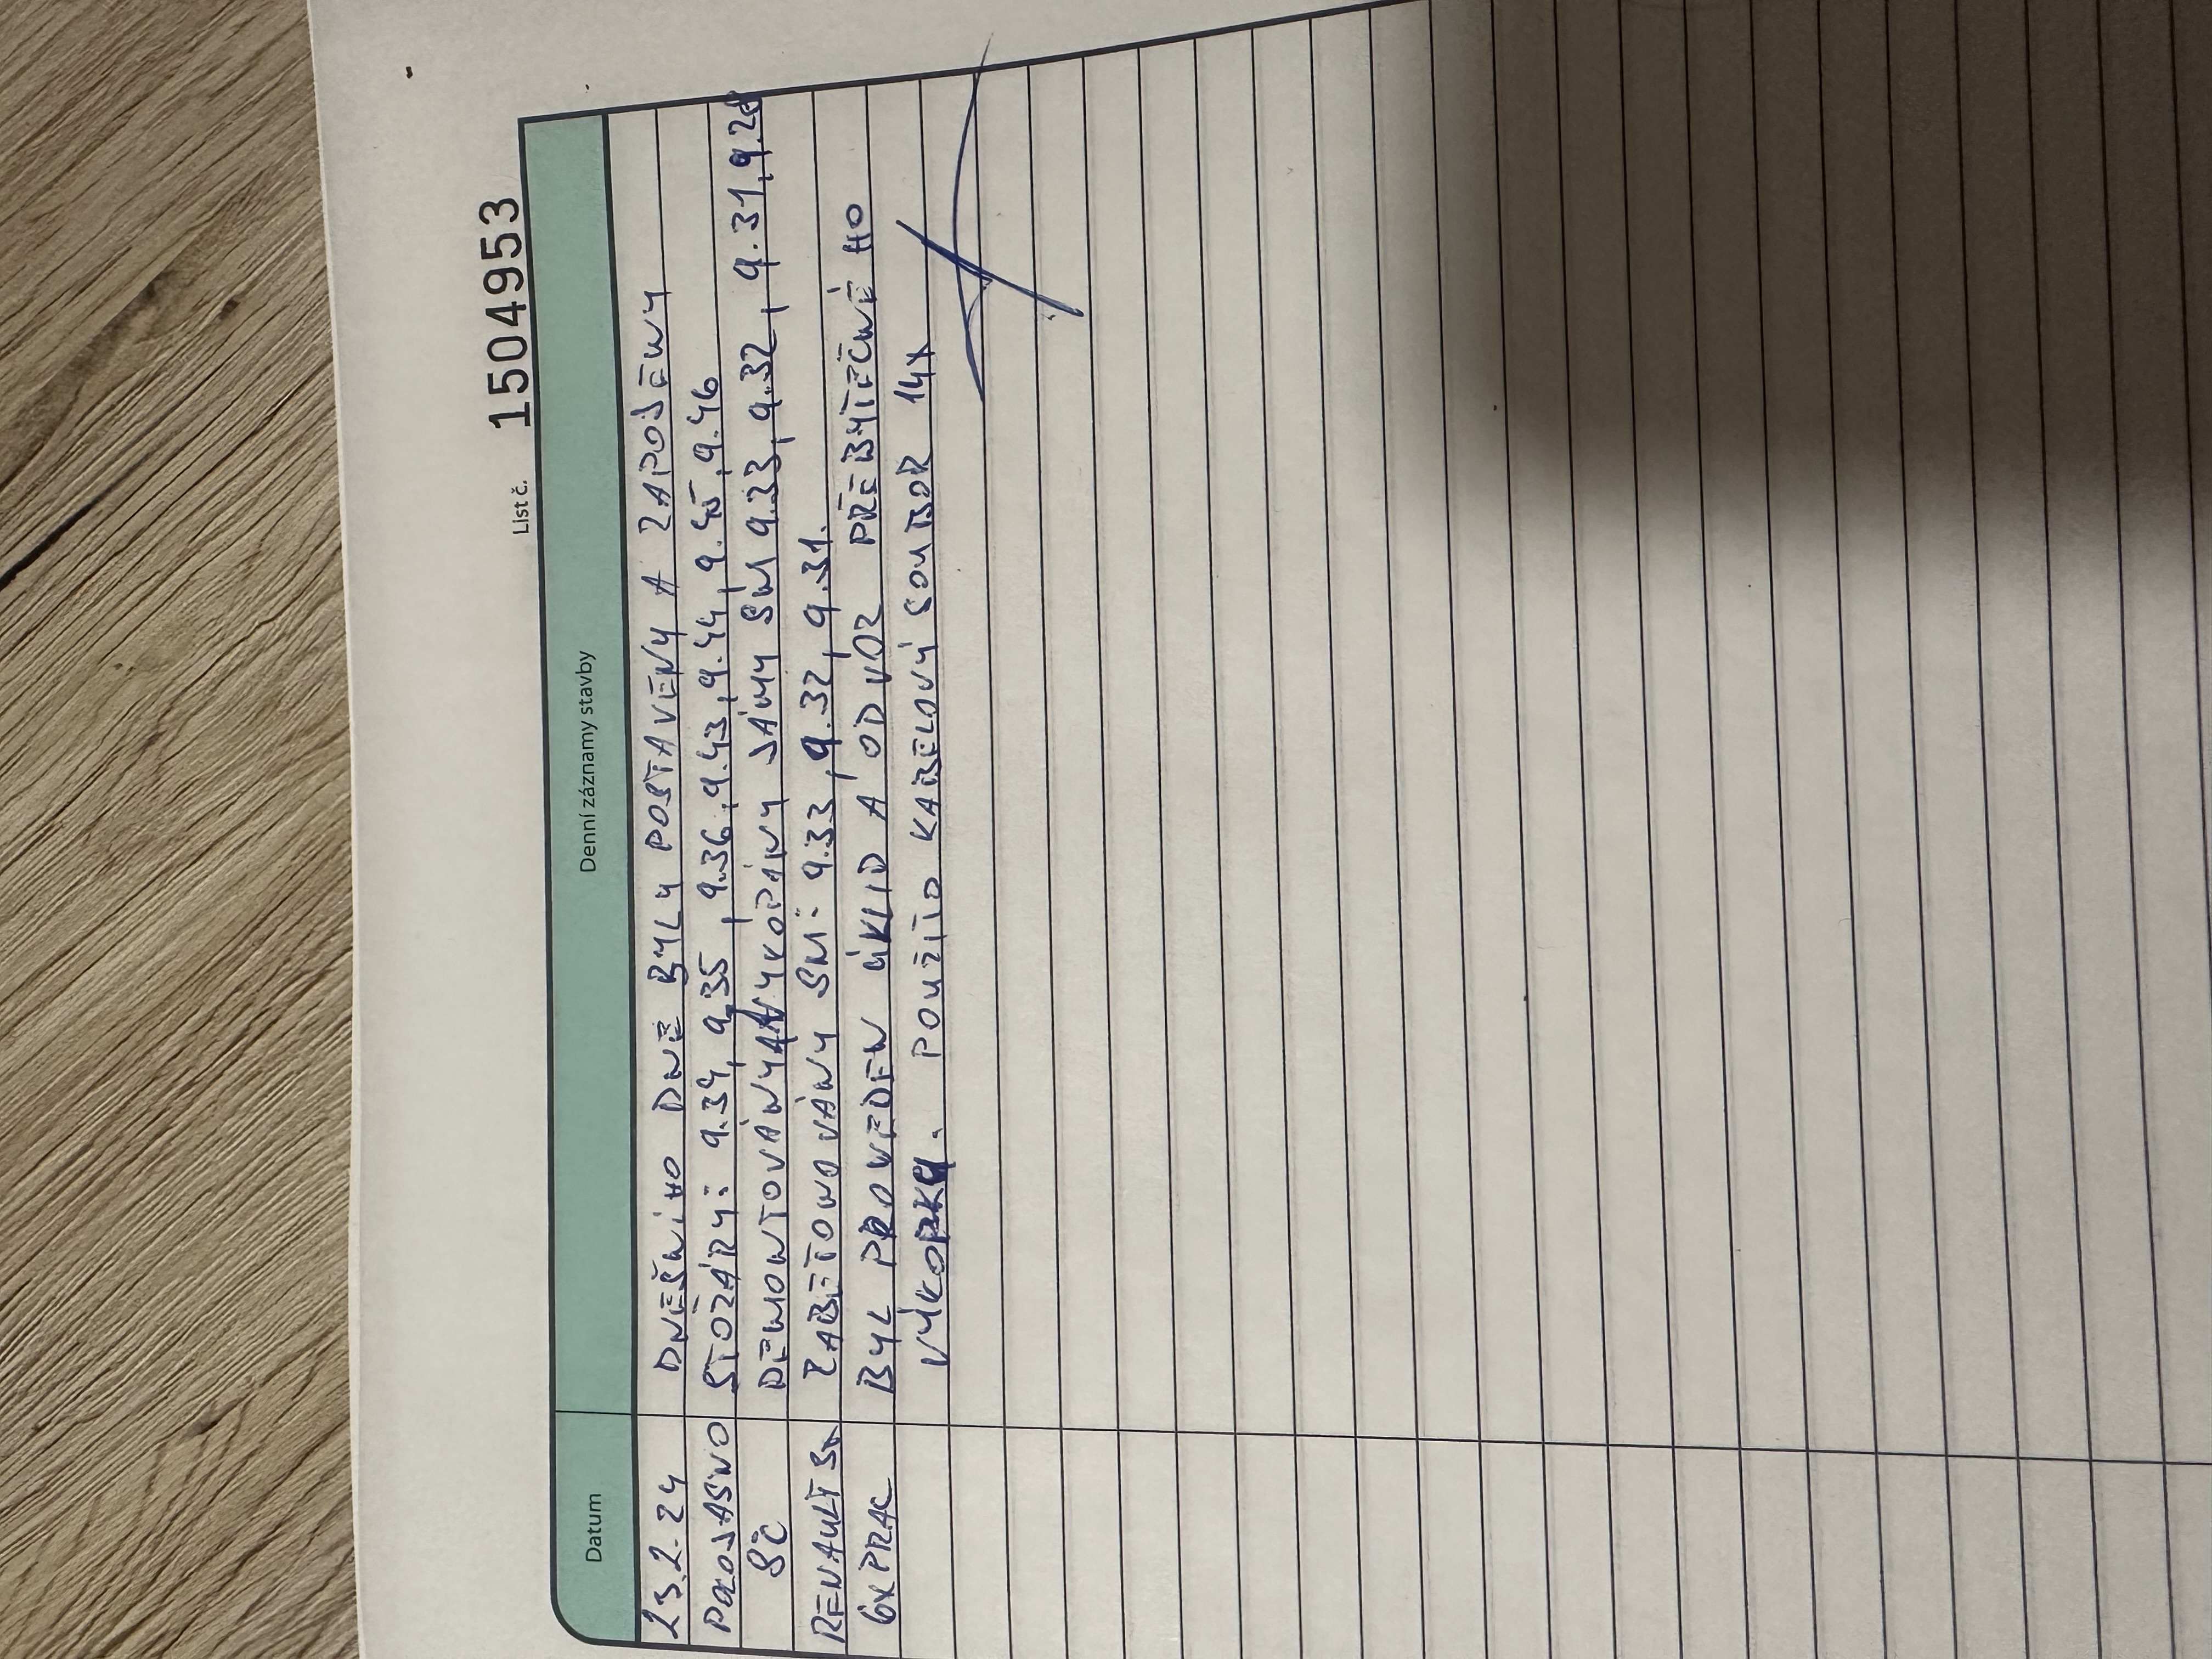 List č. 1504953
Datum
Denní záznamy stavby
23.2.24 DNEŠNÍHO DNE BYLY POSTAVENY A ZAPOJENY
POLOJASNO STOŽÁRY: 9.34, 9.35, 9.36, 9.43, 9.44, 9.45, 9.46
8°C DEMONTOVÁNY A VYKOPÁNY JÁMY SM 9.33, 9.32, 9.31, 9.28
RENAULT 3x ZABETONOVÁNY SM: 9.33, 9.32, 9.31.
6x PRAC BYL PROVEDEN ÚKLID A ODVOZ PŘEBYTEČNÉHO
VÝKOPKU. POUŽITO KABELOVÝ SOUBOR 14x